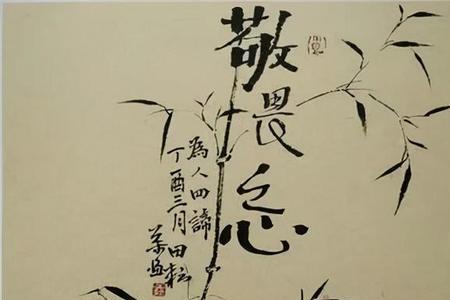 敬畏之心
為人四諦
丁酉三月田耘